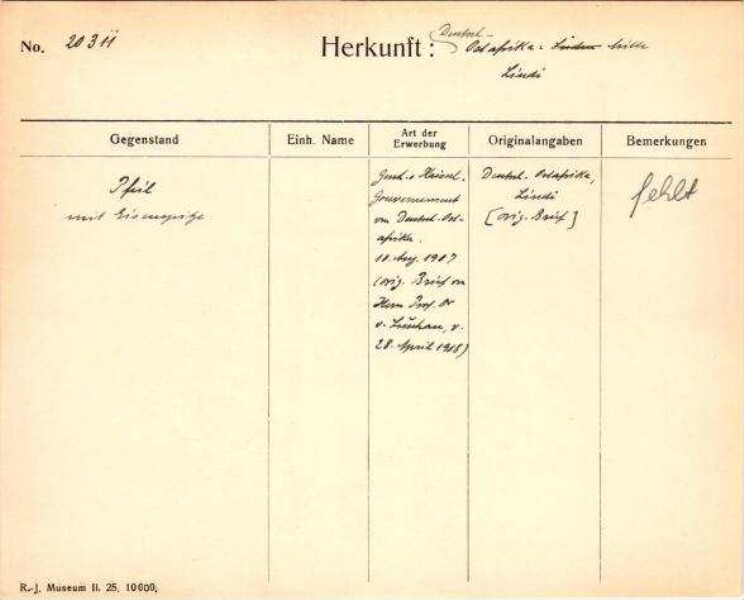 No. 20311
Herkunft: Deutsch-Ostafrika.
Lindi
Gegenstand
Einh. Name
Art der
Erwerbung
Originalangaben
Bemerkungen
Pfeil
mit Eisenspitze
Gesch. v. Kaiserl.
Gouvernement
von Deutsch-Ost-
afrika.
10. Aug. 1907
(orig. Brief von
Herrn Prof. Dr
v. Luschan, v.
28. April 1908)
Deutsch-Ostafrika,
Lindi
[orig. Brief]
fehlt
R.-J. Museum II. 25, 10000,